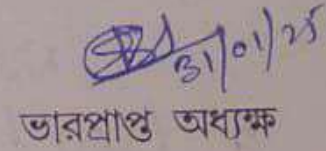 31/01/25
ভারপ্রাপ্ত অধ্যক্ষ